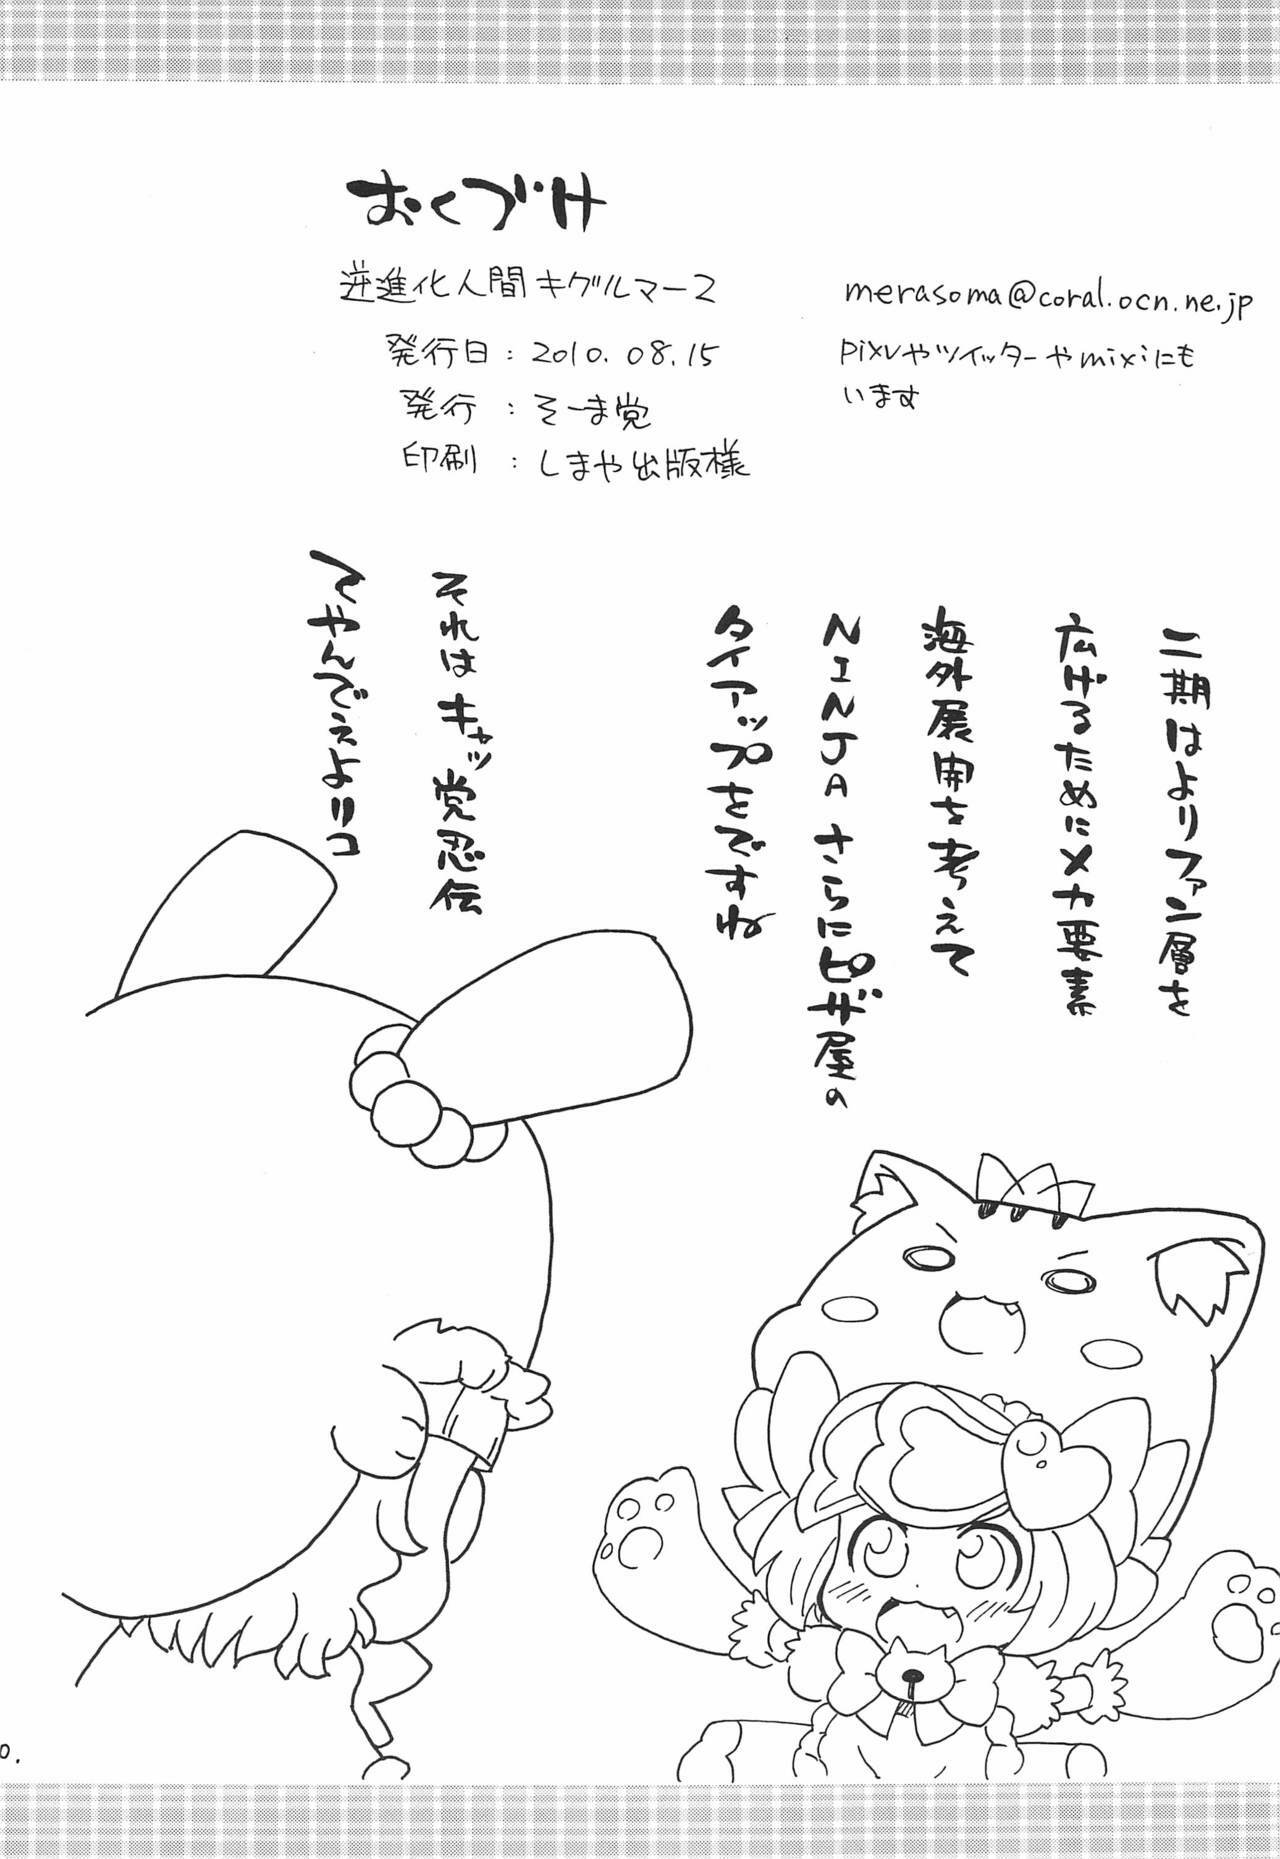 おくづけ
逆進化人間キグルマー2
発行日：2010.08.15
発行：そーま党
印刷：しまや出版様
merasoma@coral.ocn.ne.jp
pixivやツイッターやmixiにも
います
二期はよりファン層を
広げるためにメカ要素
海外展開を考えて
NINJAさらにピザ屋の
タイアップをですね
それはキャッ党忍伝
てやんでえよリコ
0.